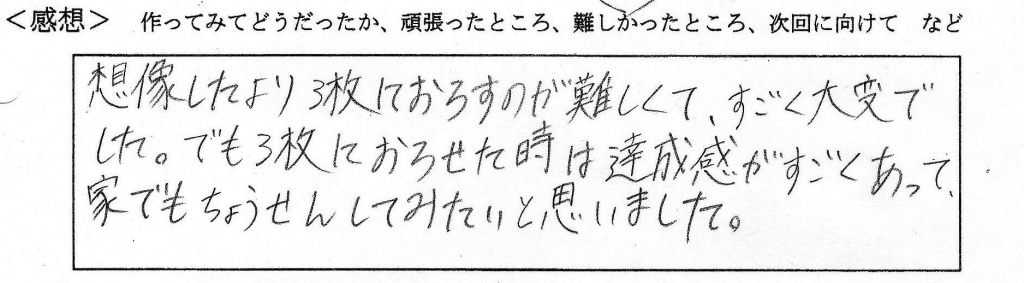 ＜感想＞ 作ってみてどうだったか、頑張ったところ、難しかったところ、次回に向けて など
想像したより3枚におろすのが難しくて、すごく大変で
した。でも3枚におろせた時は達成感がすごくあって、
家でもちょうせんしてみたいと思いました。